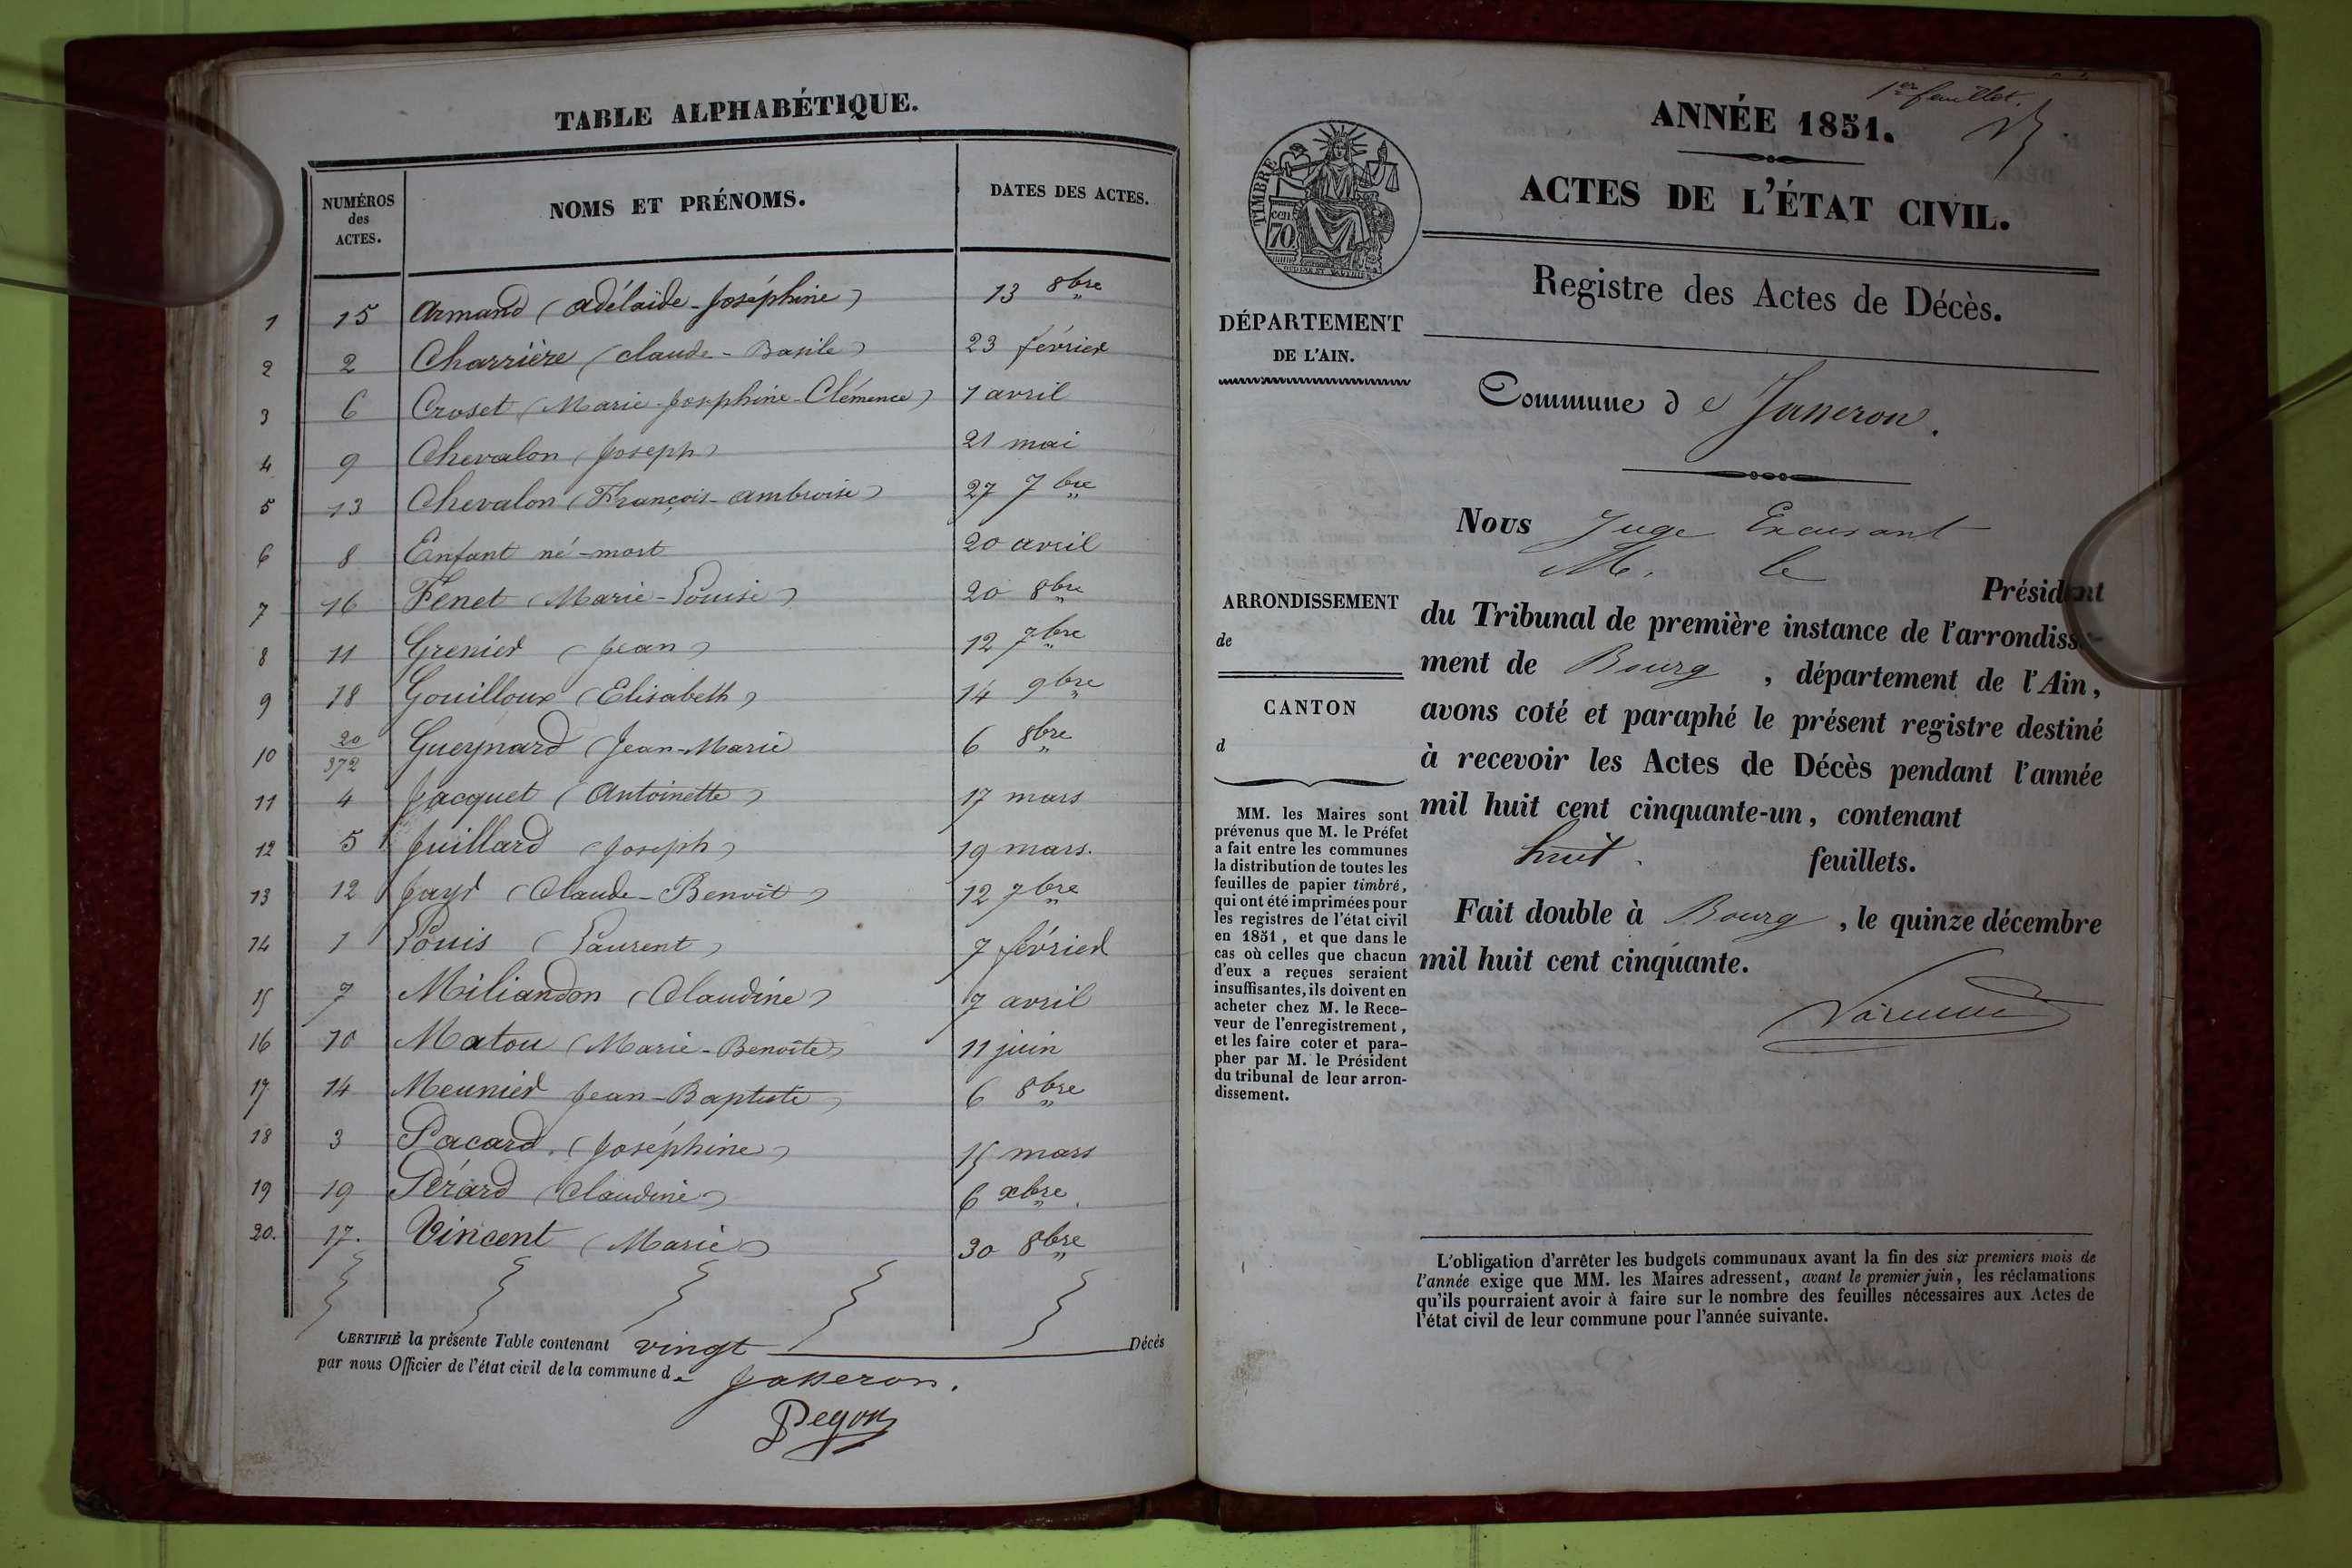 TABLE ALPHABÉTIQUE.
NUMÉROS des ACTES. NOMS ET PRÉNOMS. DATES DES ACTES.
1 15 Armand (Adélaïde-Joséphine) 13 8bre
2 2 Charrière (Claude-Basile) 23 février
3 6 Croset (Marie-Josephine-Clémence) 1 avril
4 9 Chevalon (Joseph) 21 mai
5 13 Chevalon (François-Ambroise) 27 7bre
6 8 Enfant né-mort 20 avril
7 16 Fenet (Marie-Louise) 20 8bre
8 11 Grenier (Jean) 12 7bre
9 18 Gouilloux (Elisabeth) 14 9bre
10 20/372 Gueynard (Jean-Marie 6 8bre
11 4 Jacquet (Antoinette) 17 mars
12 5 Juillard (Joseph) 19 mars.
13 12 Jayr (Claude-Benoît) 12 7bre
14 1 Louis (Laurent) 7 février
15 7 Miliandon (Claudine) 7 avril
16 10 Matou (Marie-Benoîte) 11 juin
17 14 Meunier Jean-Baptiste) 6 8bre
18 3 Pacard. (Joséphine) 15 mars
19 19 Pérard (Claudine) 6 xbre.
20. 17. Vincent (Marie) 30 8bre
CERTIFIÉ la présente Table contenant vingt Décés
par nous Officier de l'état civil de la commune de Jasseron.
Pegon
1er feuillet.
ANNÉE 1851.
ACTES DE L'ÉTAT CIVIL.
TIMBRE
70 cen
Registre des Actes de Décès.
DÉPARTEMENT
DE L'AIN.
Commune de Jasseron.
Nous Juge Excusant
M. le
Président
du Tribunal de première instance de l'arrondisse-
ment de Bourg, département de l'Ain,
avons coté et paraphé le présent registre destiné
à recevoir les Actes de Décès pendant l'année
mil huit cent cinquante-un, contenant
huit. feuillets.
Fait double à Bourg, le quinze décembre
mil huit cent cinquante.
ARRONDISSEMENT
de
CANTON
d
MM. les Maires sont
prévenus que M. le Préfet
a fait entre les communes
la distribution de toutes les
feuilles de papier timbré,
qui ont été imprimées pour
les registres de l'état civil
en 1851, et que dans le
cas où celles que chacun
d'eux a reçues seraient
insuffisantes, ils doivent en
acheter chez M. le Rece-
veur de l'enregistrement,
et les faire coter et para-
pher par M. le Président
du tribunal de leur arron-
dissement.
L'obligation d'arrêter les budgets communaux avant la fin des six premiers mois de
l'année exige que MM. les Maires adressent, avant le premier juin, les réclamations
qu'ils pourraient avoir à faire sur le nombre des feuilles nécessaires aux Actes de
l'état civil de leur commune pour l'année suivante.